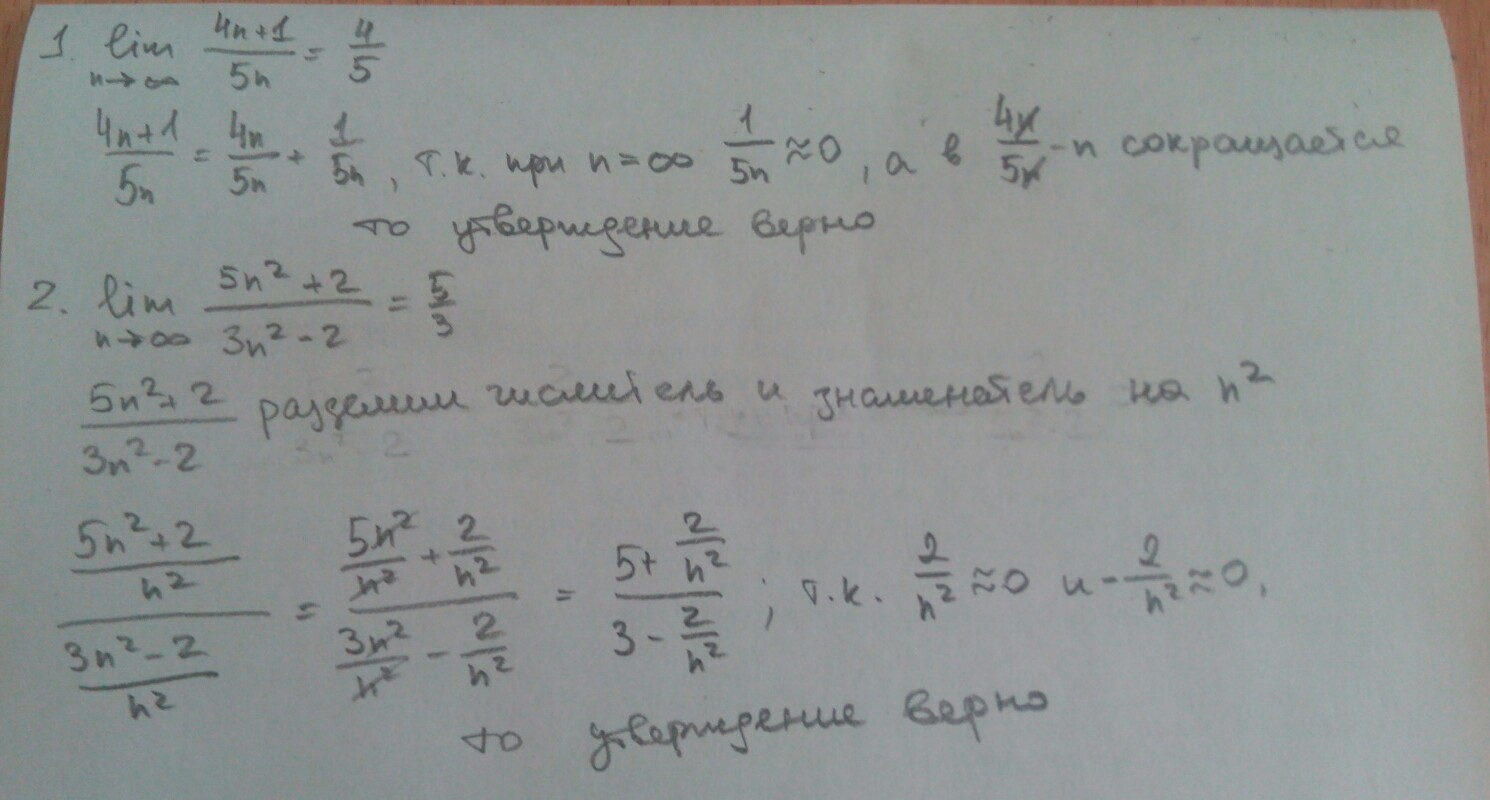 1. lim n→∞ (4n+1)/(5n) = 4/5
(4n+1)/(5n) = 4n/5n + 1/5n, т.к. при n=∞ 1/5n ≈0, а в 4n/5n - n сокращается
то утверждение верно
2. lim n→∞ (5n²+2)/(3n²-2) = 5/3
(5n²+2)/(3n²-2) разделим числитель и знаменатель на n²
((5n²+2)/n²)/((3n²-2)/n²) = (5n²/n² + 2/n²)/(3n²/n² - 2/n²) = (5+ 2/n²)/(3 - 2/n²) ; т.к. 2/n² ≈0 и - 2/n² ≈0,
то утверждение верно